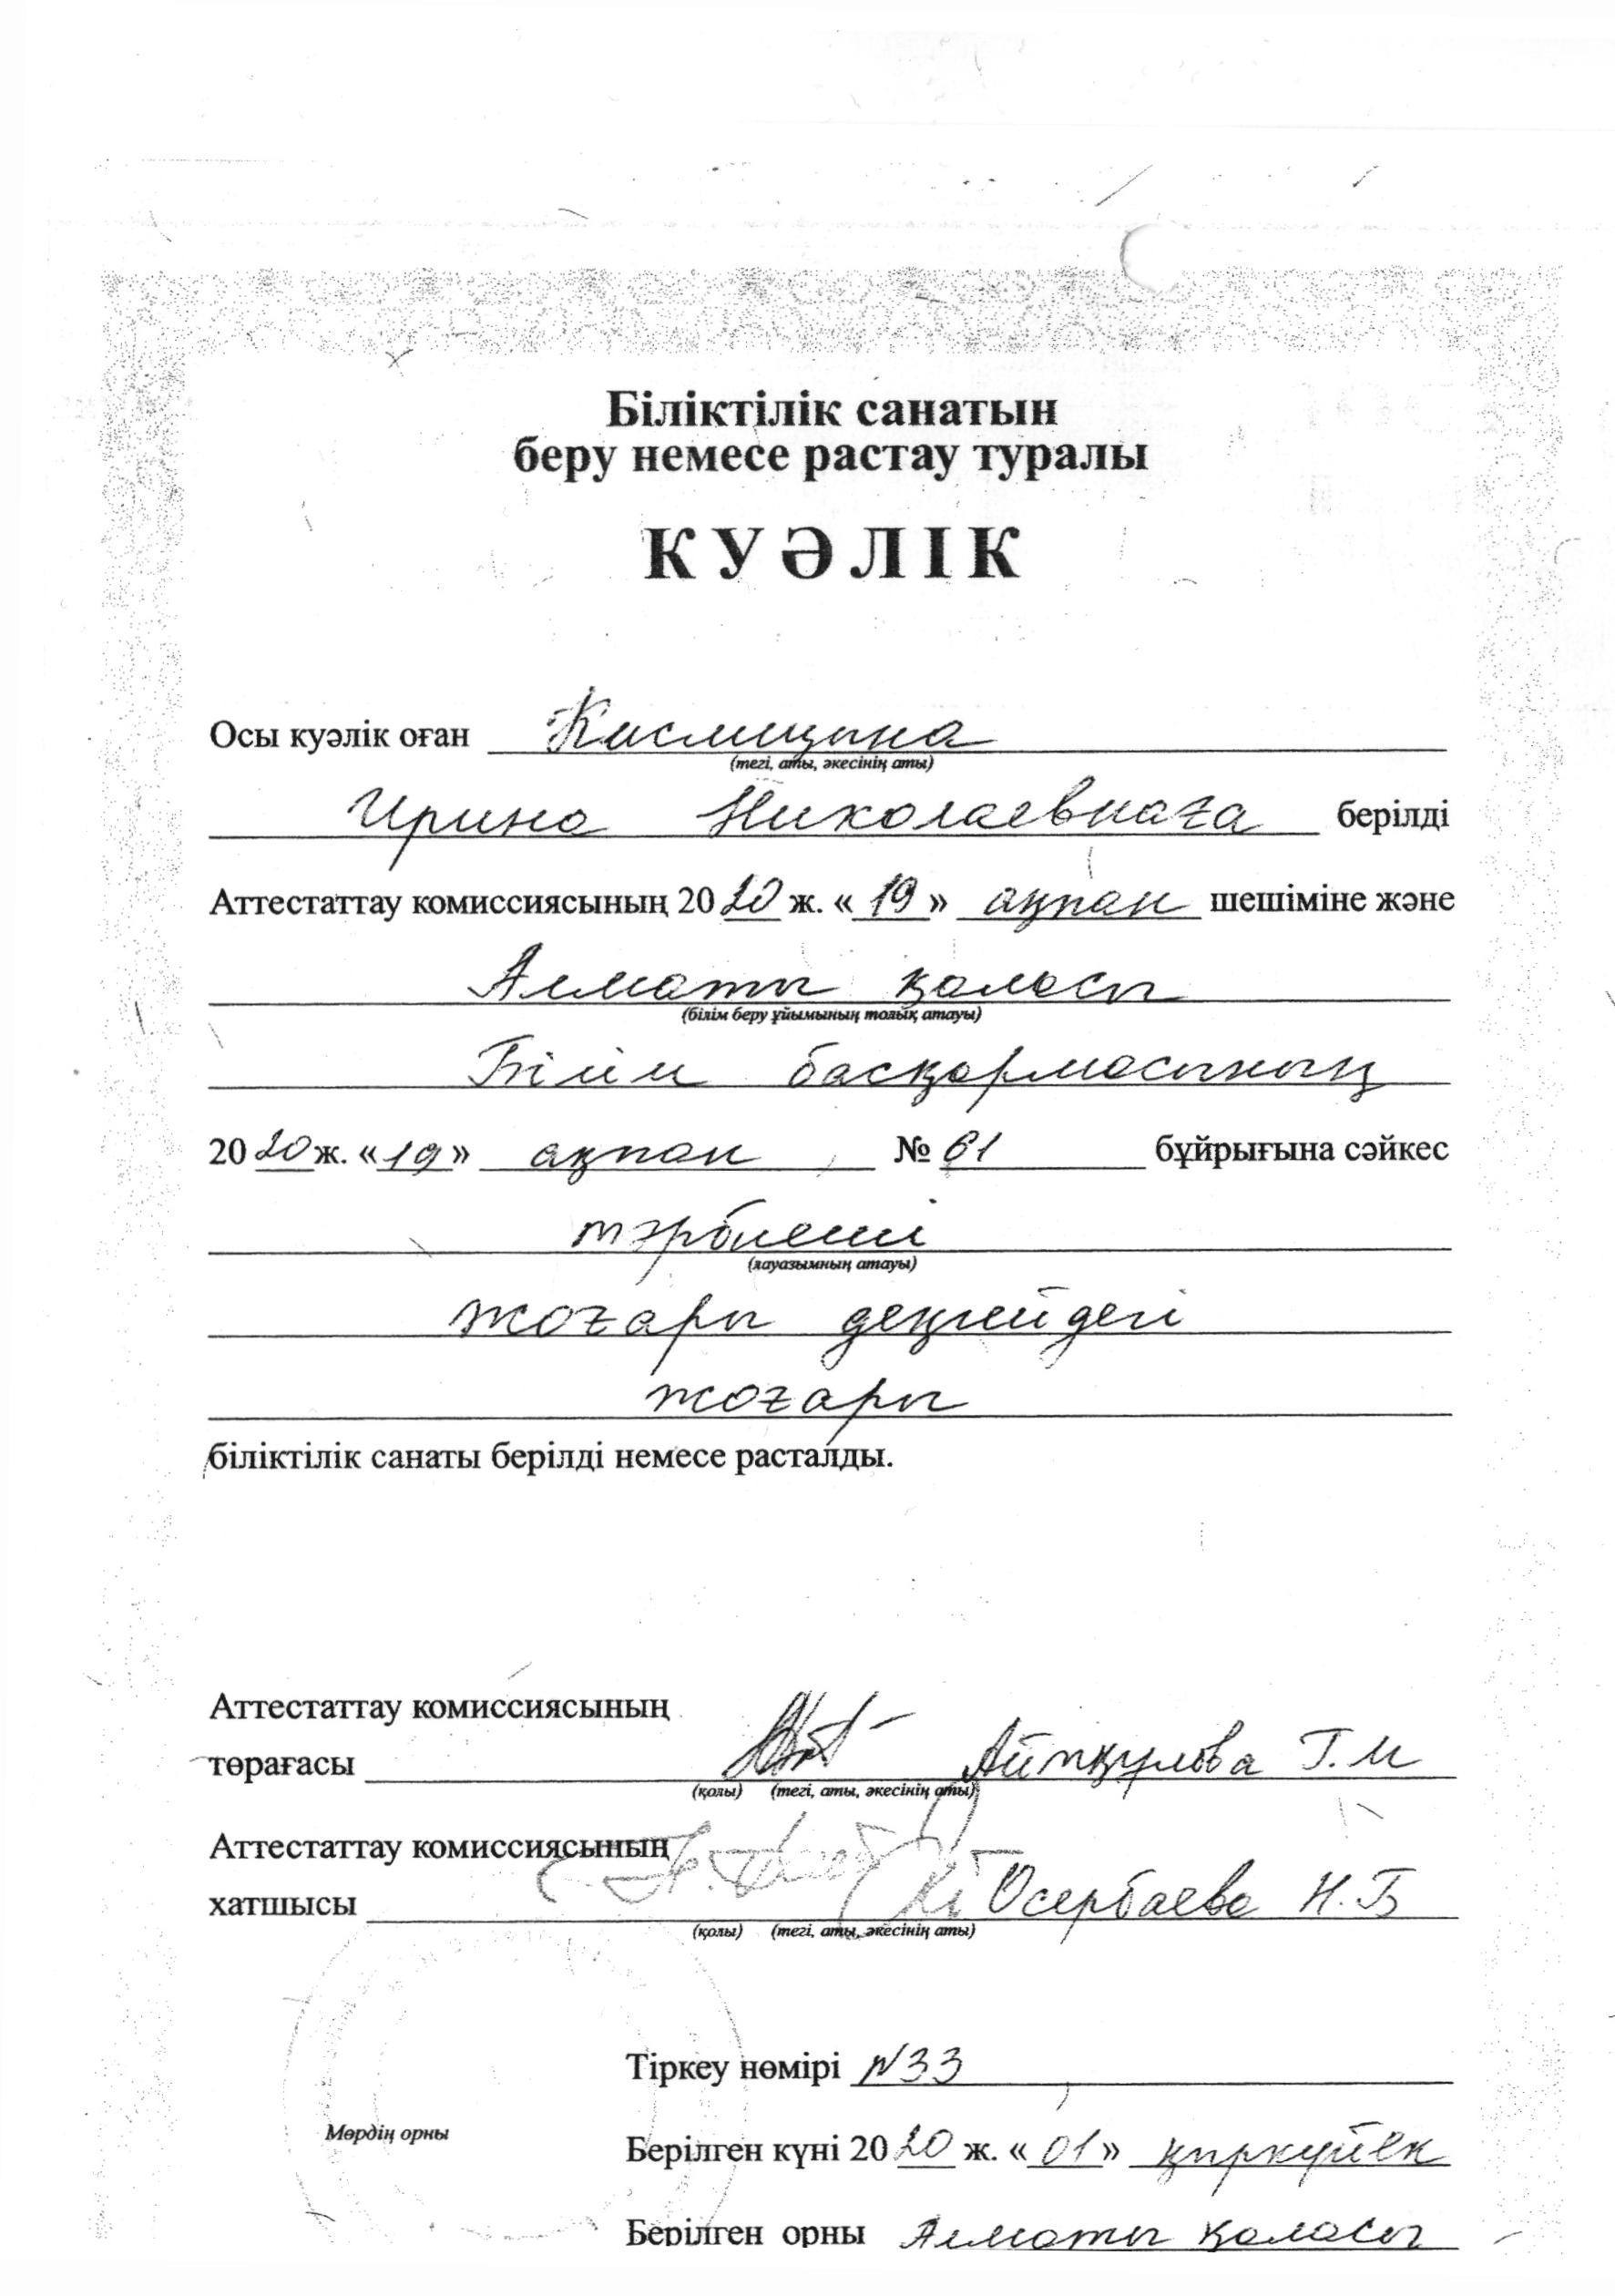 Біліктілік санатын
беру немесе растау туралы
КУӘЛІК
Осы куәлік оған Кислицына
(тегі, аты, әкесінің аты)
Ирина Николаевнаға берілді
Аттестаттау комиссиясының 2020 ж. «19» ақпан шешіміне және
Алматы қаласы
(білім беру ұйымының толық атауы)
Білім басқармасының
2020 ж. «19» ақпан № 61 бұйрығына сәйкес
тәрбиеші
(лауазымның атауы)
жоғары деңгейдегі
жоғары
біліктілік санаты берілді немесе расталды.
Аттестаттау комиссиясының
төрағасы Айтқулова Г.М
(қолы) (тегі, аты, әкесінің аты)
Аттестаттау комиссиясының
хатшысы Осербаева Н.Б
(қолы) (тегі, аты, әкесінің аты)
Тіркеу нөмірі N33
Мөрдің орны
Берілген күні 2020 ж. «01» қыркүйек
Берілген орны Алматы қаласы